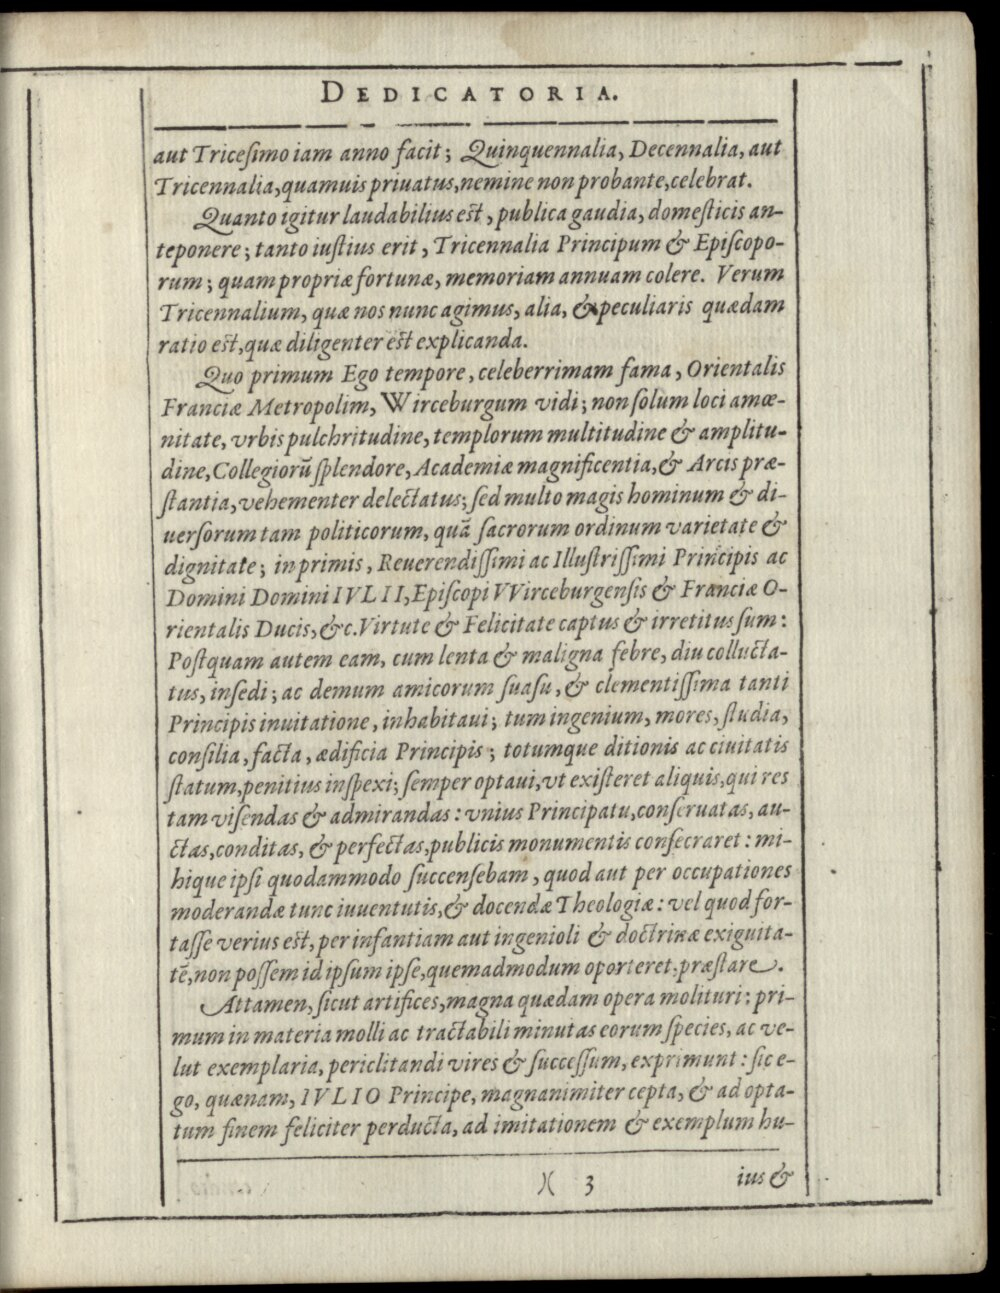 DEDICATORIA.
aut Tricesimo iam anno facit; Quinquennalia, Decennalia, aut
Tricennalia, quamuis priuatus, nemine non probante, celebrat.
Quanto igitur laudabilius est, publica gaudia, domesticis an-
teponere; tanto iustius erit, Tricennalia Principum & Episcopo-
rum; quam propriæ fortunæ, memoriam annuam colere. Verum
Tricennalium, quæ nos nunc agimus, alia, & peculiaris quædam
ratio est, quæ diligenter est explicanda.
Quo primum Ego tempore, celeberrimam fama, Orientalis
Franciæ Metropolim, Wirceburgum vidi; non solum loci amœ-
nitate, vrbis pulchritudine, templorum multitudine & amplitu-
dine, Collegiorũ splendore, Academiæ magnificentia, & Arcis præ-
stantia, vehementer delectatus; sed multo magis hominum & di-
uersorum tam politicorum, quã sacrorum ordinum varietate &
dignitate; inprimis, Reuerendissimi ac Illustrissimi Principis ac
Domini Domini IVLII, Episcopi VVirceburgensis & Franciæ O-
rientalis Ducis, &c. Virtute & Felicitate captus & irretitus sum:
Postquam autem eam, cum lenta & maligna febre, diu collucta-
tus, insedi; ac demum amicorum suasu, & clementissima tanti
Principis inuitatione, inhabitaui; tum ingenium, mores, studia,
consilia, facta, ædificia Principis; totumque ditionis ac ciuitatis
statum, penitius inspexi; semper optaui, vt existeret aliquis, qui res
tam visendas & admirandas: vnius Principatu, conseruatas, au-
ctas, conditas, & perfectas, publicis monumentis consecraret: mi-
hique ipsi quodammodo succensebam, quod aut per occupationes
moderandæ tunc iuuentutis, & docendæ Theologiæ: vel quod for-
tasse verius est, per infantiam aut ingenioli & doctrinæ exiguita-
tẽ, non possem id ipsum ipse, quemadmodum oporteret, præstare.
Attamen, sicut artifices, magna quædam opera molituri: pri-
mum in materia molli ac tractabili minutas eorum species, ac ve-
lut exemplaria, periclitandi vires & successum, exprimunt: sic e-
go, quænam, IVLIO Principe, magnanimiter cepta, & ad opta-
tum finem feliciter perducta, ad imitationem & exemplum hu-
)( 3
ius &